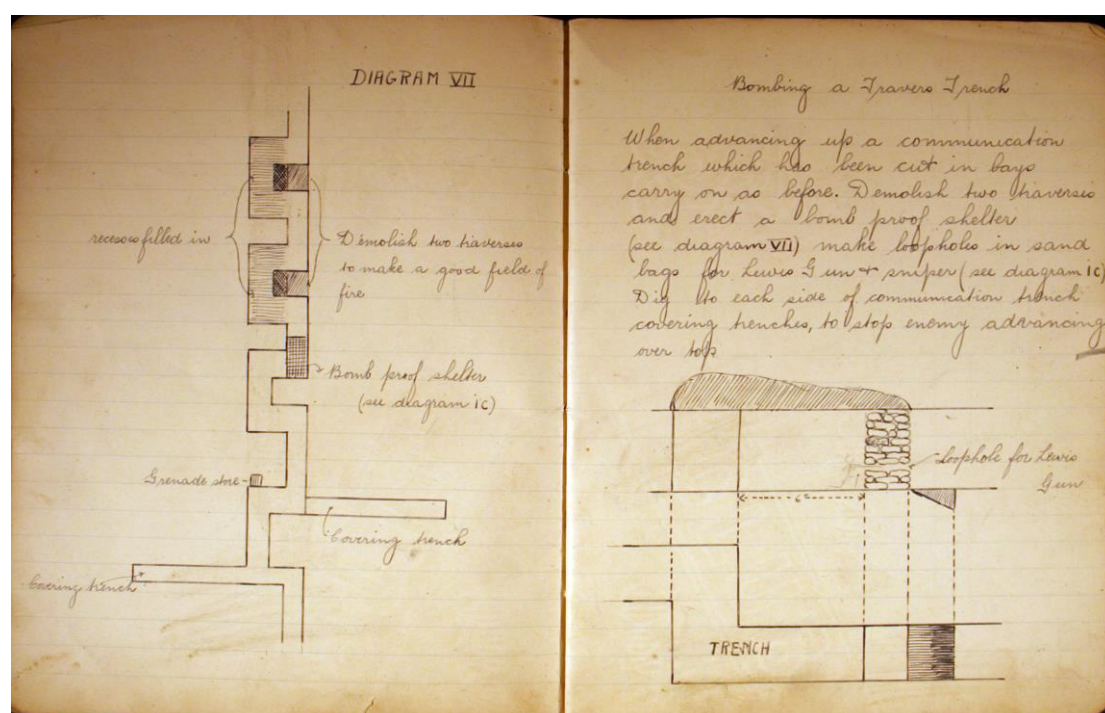 DIAGRAM VII
recesses filled in
Demolish two traverses
to make a good field of
fire
Bomb proof shelter
(see diagram 1c)
Grenade store
Covering trench
Covering trench
Bombing a Travers Trench
When advancing up a communication
trench which has been cut in bays
carry on as before. Demolish two traverses
and erect a bomb proof shelter
(see diagram VII) make loopholes in sand
bags for Lewis Gun + sniper (see diagram 1c)
Dig to each side of communication trench
covering trenches, to stop enemy advancing
over top
Loophole for Lewis
Gun
6'
TRENCH